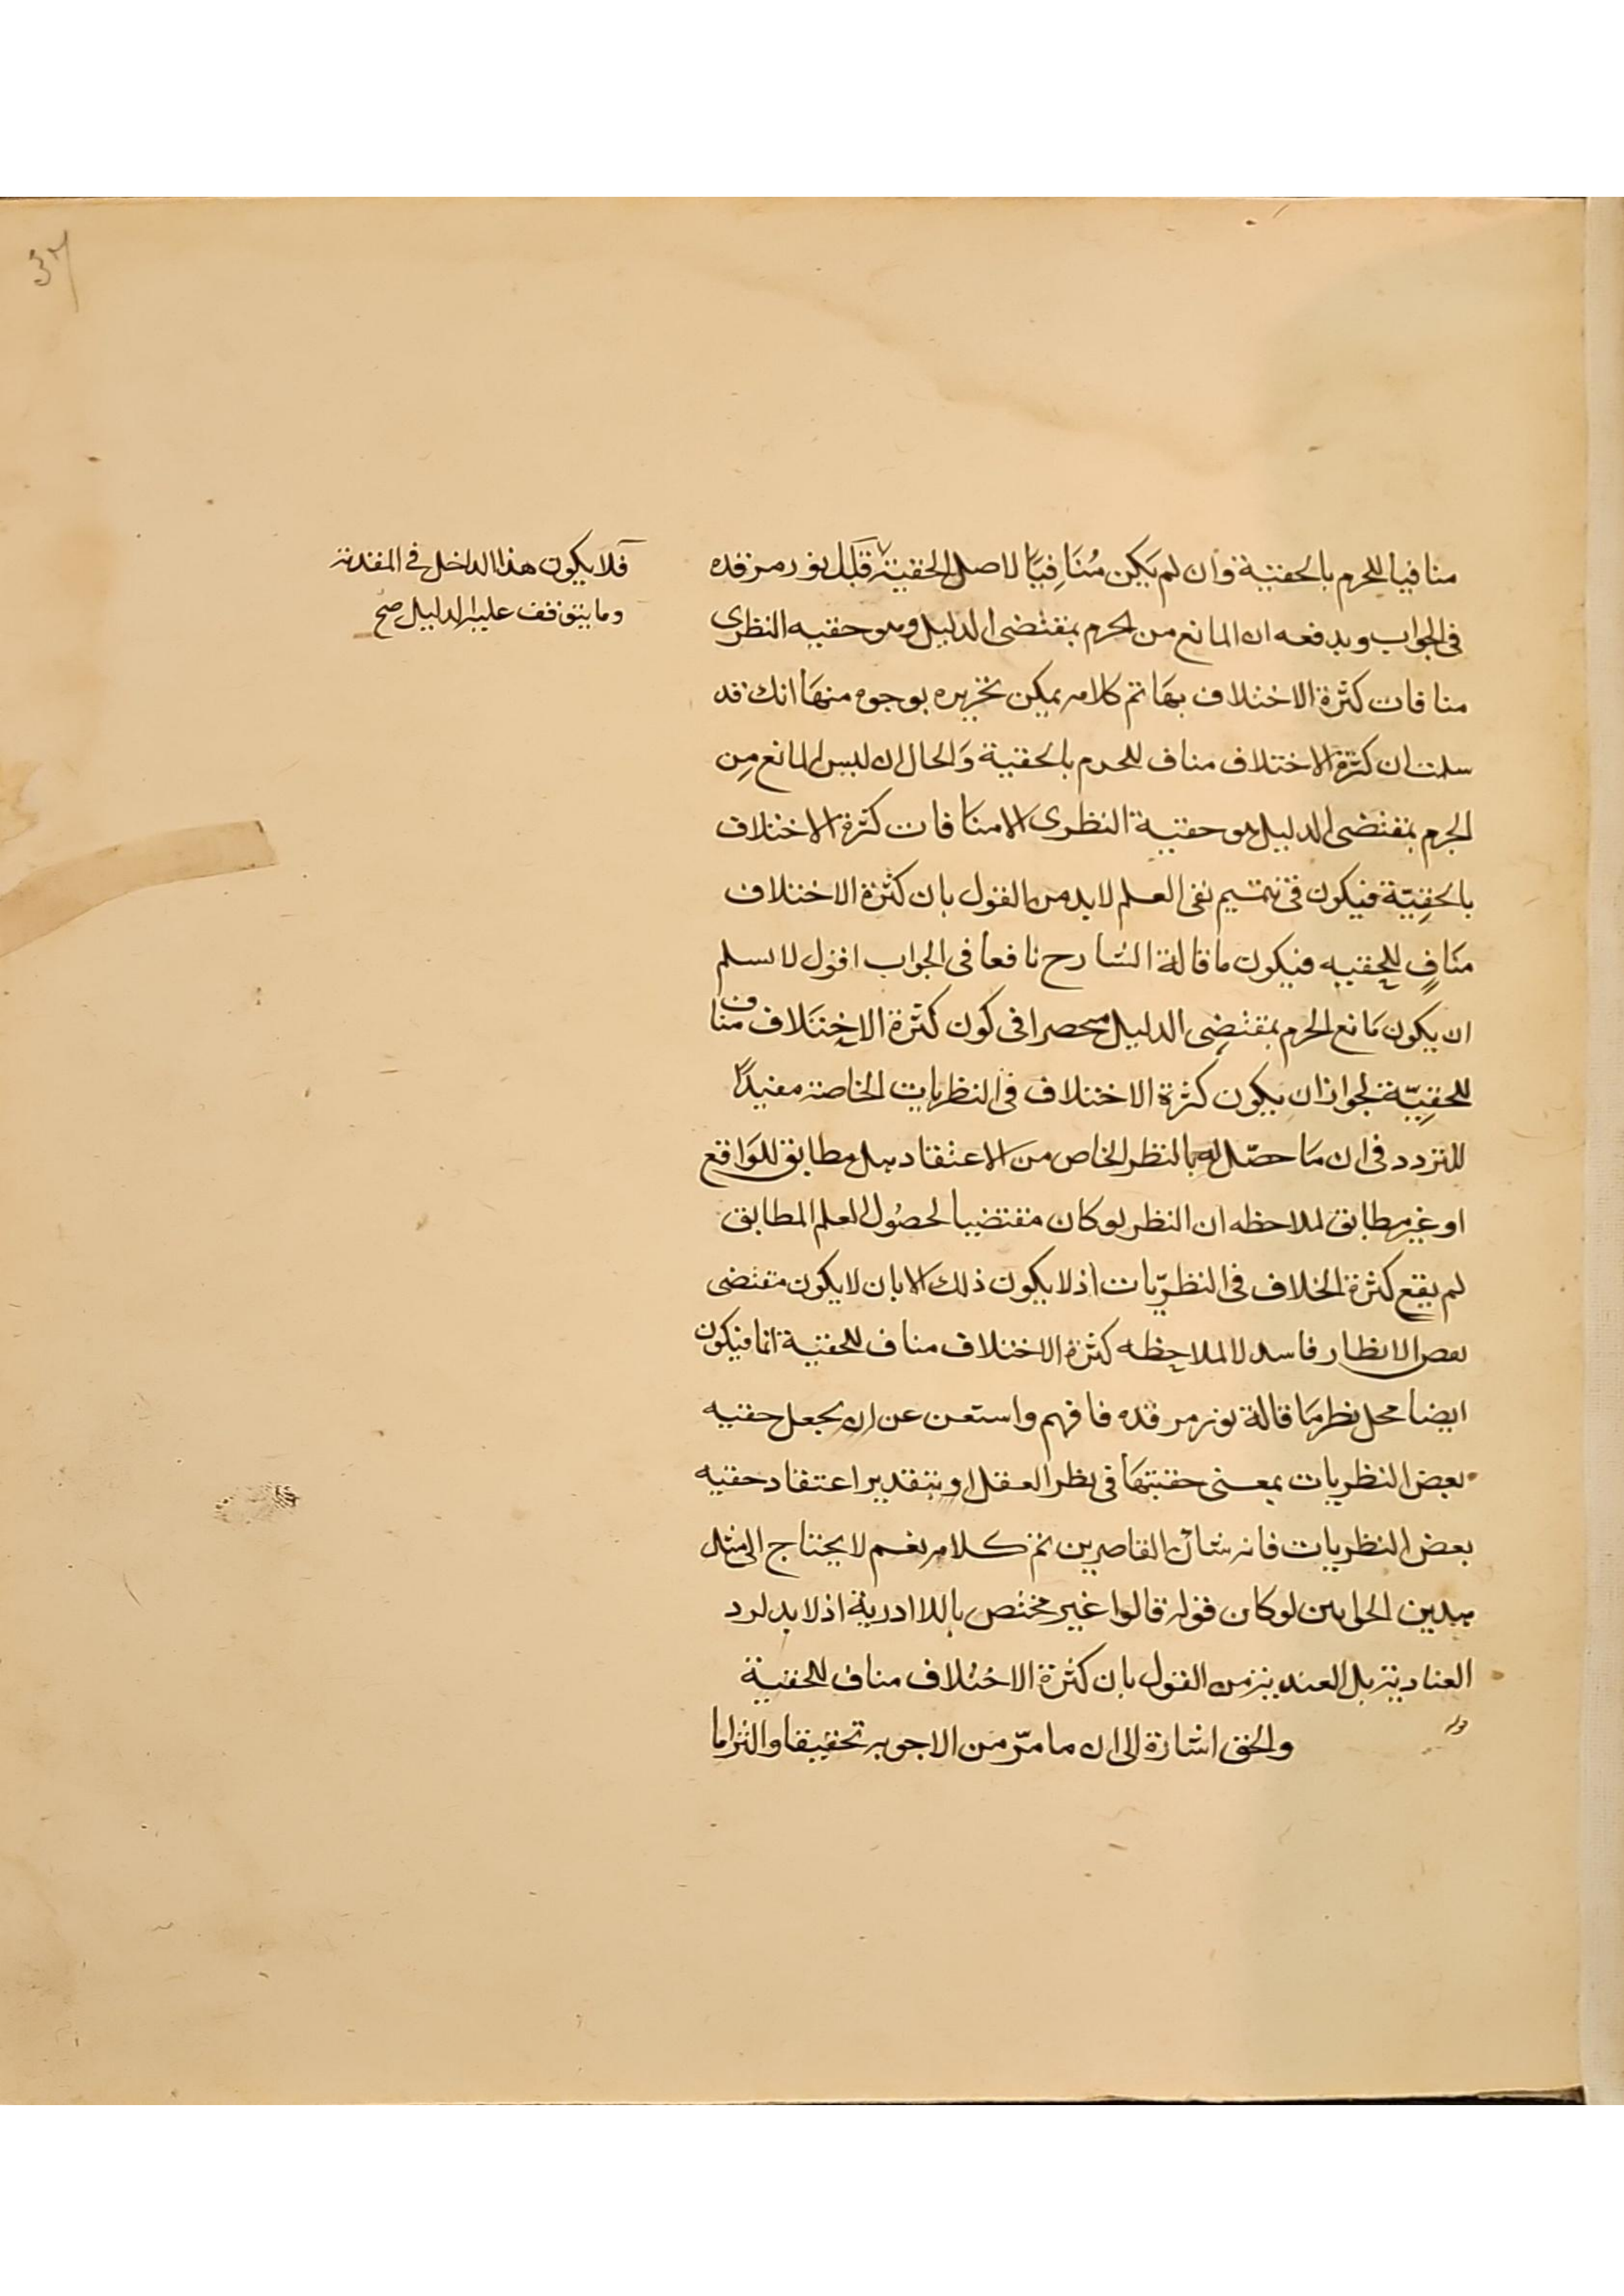 منافيا للجزم بالحقية وان لم يكن مُنَافِيًا لاصل الحقية قبل نور مرقده
في الجواب ويدفعه ان المانع من الجزم بمقتضى الدليل وهو حقيه النظرى
منافات كثرة الاختلاف بها تم كلامه يمكن تحريره بوجوه منها انك قد
سلمت ان كثرة الاختلاف مناف للجزم بالحقية والحال ان ليس المانع مِن
الجزم بمقتضى الدليل هو حقية النظرى الا منافات كثرة الاختلاف
بالحقِيّة فيكون في تتميم نفى العلم لابد من القول بان كثرة الاختلاف
منَافٍ للحقيه فيكون ما قالة الشارح نافعا فى الجواب اقول لا نسلم
ان يكون مَانع الجزم بمقتضِى الدليل منحصرا فى كون كثرة الاختلاف مناف
للحقِيّة لجواز ان يكون كثرة الاختلاف فى النظريات الخاصة مفيدًا
للتردد فى ان مَا حصّل له بالنظر الخاص من الاعتقاد هل مطابق للوَاقع
او غير مطابق لملاحظه ان النظر لو كان مقتضيا لحصُول العلم المطابق
لم يقع كثرة الخلاف فى النظريّات اذ لا يكون ذلك الا بان لا يكون مقتضى
بعض الانظار فاسد لا لملاحظه كثرة الاختلاف مناف للحقية انما فيكون
ايضا محل نظر مَا قالة نور مرقده فافهم واستعن عن ان يجعل حقيه
بعض النظريات بمعنى حقيتهَا فى نظر العقل او بتقدير اعتقاد حقيه
بعض النظريات فانه شان القاصرين تم كلامه نعم لا يحتاج الى مثل
هدين الجوابين لو كان قوله قالوا غير مختص باللاادرية اذ لابد لرد
العنادية بل العندية من القول بان كثرة الاختلاف مناف للحقية
قوله والحق اشارة الى ان ما مرّ من الاجوبه تحقيقا والزاما
فلا يكون هذا الداخل فى المقدمة
وما يتوقف عليه الدليل صح